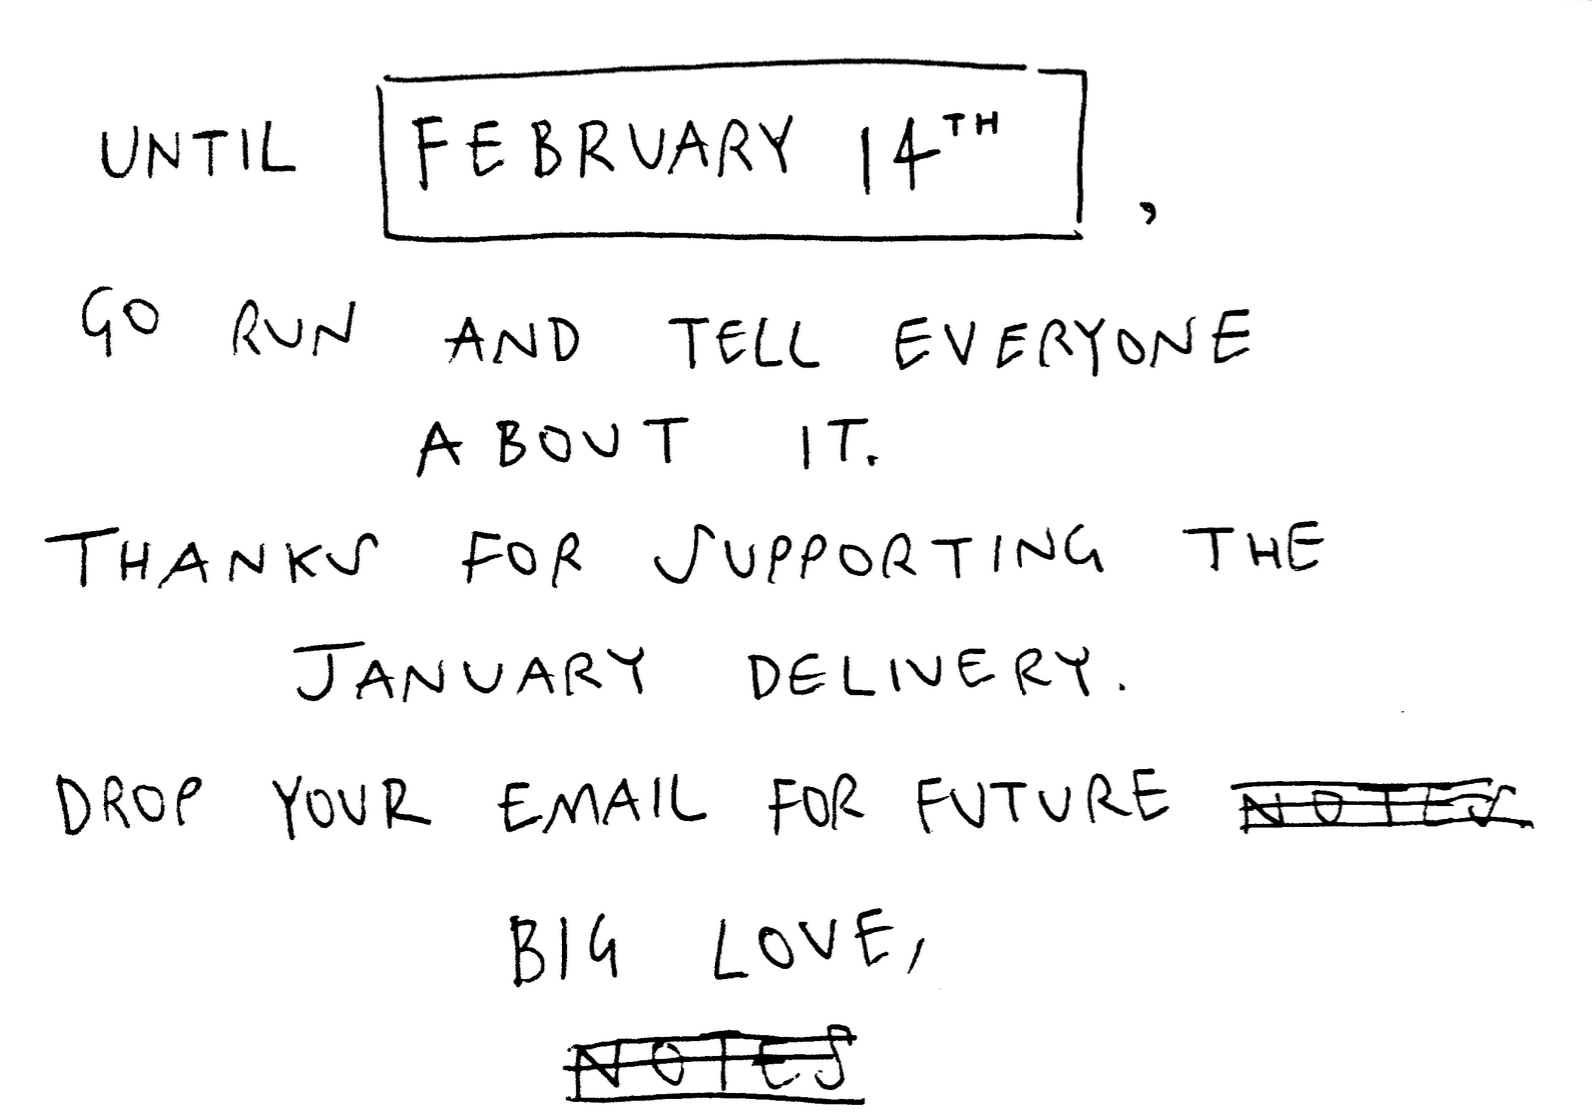 UNTIL FEBRUARY 14TH,
GO RUN AND TELL EVERYONE
ABOUT IT.
THANKS FOR SUPPORTING THE
JANUARY DELIVERY.
DROP YOUR EMAIL FOR FUTURE NOTES
BIG LOVE,
NOTES